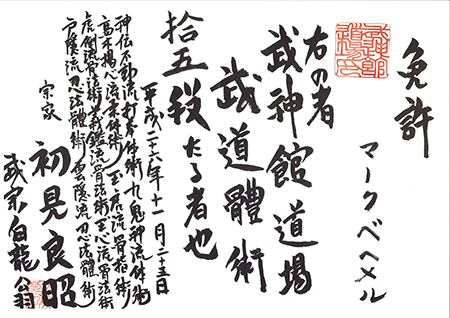 免許
マークベヘメル
右の者
武神館道場
武道體術
拾五段たる者也
平成二十六年十一月二十五日
神伝不動流打拳体術 九鬼神流体術
高木揚心流柔体術 玉虎流骨指術
虎倒流骨法術 義鑑流骨法術 玉心流忍法体術
戸隠流忍法體術 雲隠流忍法體術
宗家
初見良昭
武宗白龍翁